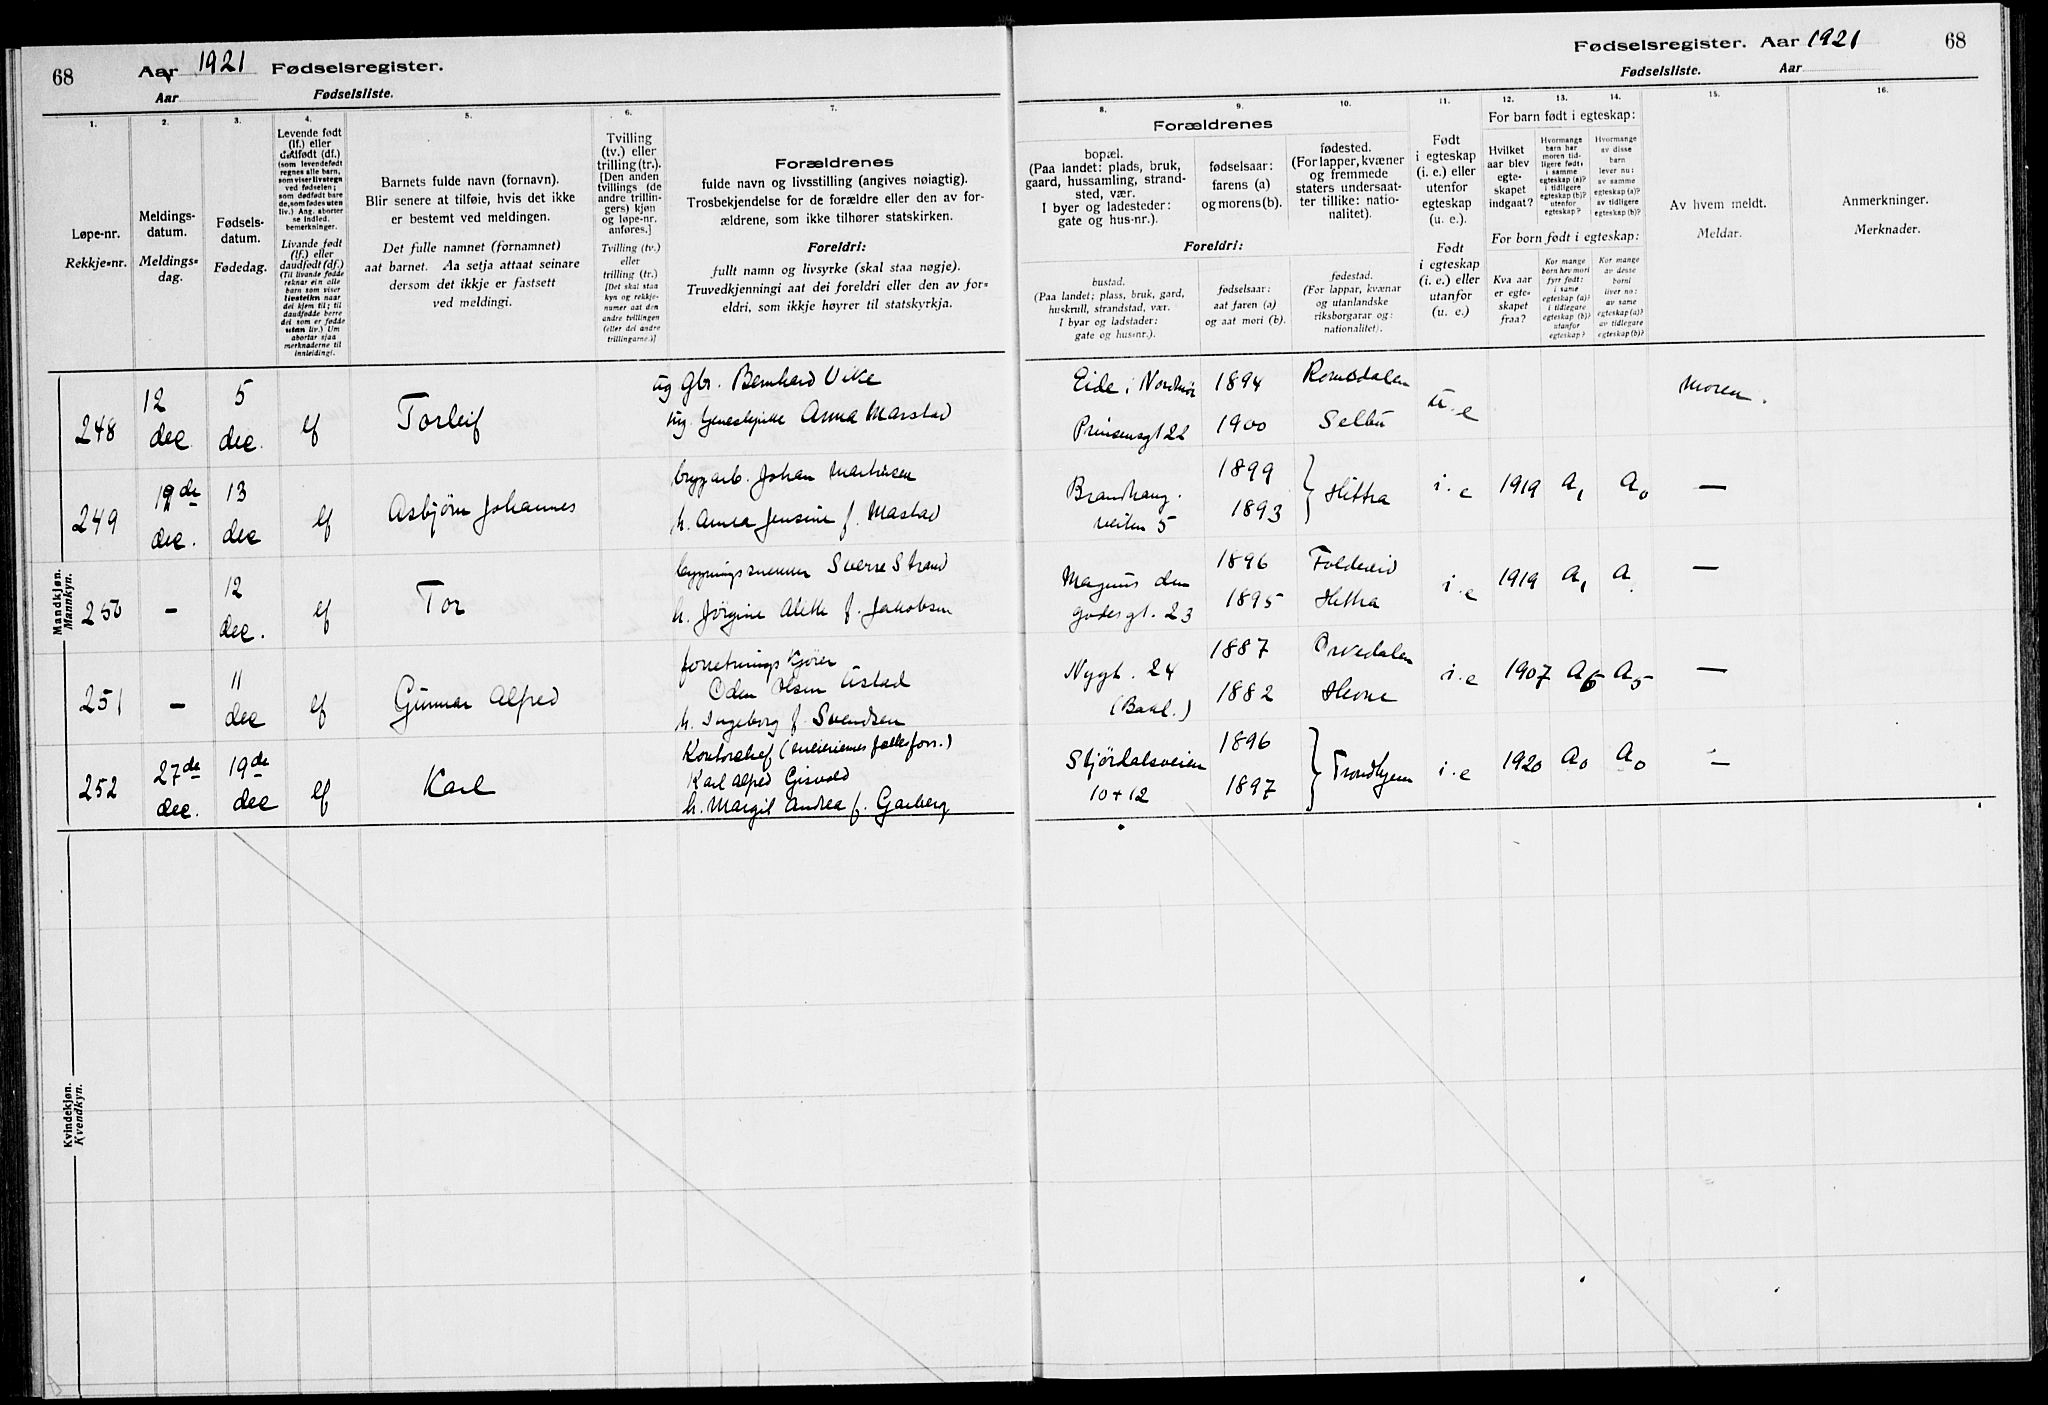 68
Aar 1921 Fødselsregister.
Aar Fødselsliste.
Fødselsregister. Aar 1921 68
Fødselsliste. Aar
1.
Løpe-nr.
Rekkje=nr.
2.
Meldings-
datum.
Meldings=
dag.
3.
Fødsels-
datum.
Fødedag.
4.
Levende født
(lf.) eller
dødfødt (df.)
(som levendefødt
regnes alle barn,
som viser livstegn
ved fødselen;
som dødfødt bare
de, som fødes uten
liv.) Ang. aborter
se indled.
bemerkninger.
Livande født
(lf.) eller
daudfødt (df.)
(Til livande fødde
reknar ein alle
barn som viser
livsteikn naar
dei kjem til; til
daudfødde berre
dei som er fødde
utan liv.) Um
abortar sjaa
merknaderne til
innleidingi.
5.
Barnets fulde navn (fornavn).
Blir senere at tilføie, hvis det ikke
er bestemt ved meldingen.
Det fulle namnet (fornamnet)
aat barnet. Aa setja attaat seinare
dersom det ikkje er fastsett
ved meldingi.
6.
Tvilling
(tv.) eller
trilling (tr.).
[Den anden
tvillings (de
andre trillin-
gers) kjøn
og løpe-nr.
anføres.]
Tvilling (tv.)
eller
trilling (tr.)
[Det skal staa
kyn og rekkje-
numer aat den
andre tvillingen
(eller dei andre
trillingarne.)]
7.
Forældrenes
fulde navn og livsstilling (angives nøiagtig).
Trosbekjendelse for de forældre eller den av for-
ældrene, som ikke tilhører statskirken.
Foreldri:
fullt namn og livsyrke (skal staa nøgje).
Truvedkjenningi aat dei foreldri eller den av for=
eldri, som ikkje høyrer til statskyrkja.
Forældrenes
8.
bopæl.
(Paa landet: plads, bruk,
gaard, hussamling, strand-
sted, vær.
I byer og ladesteder:
gate og hus-nr.).
Foreldri:
bustad.
(Paa landet; plass, bruk, gard,
huskrull, strandstad, vær.
I byar og ladstader:
gate og hus=nr.).
9.
fødselsaar:
farens (a)
og morens (b).
fødselsaar:
aat faren (a)
og aat mori (b).
10.
fødested.
(For lapper, kvæner
og fremmede
staters undersaat-
ter tillike: natio-
nalitet).
fødestad.
(For lappar, kvænar
og utanlandske
riksborgarar og:
nationalitet).
11.
Født
i egteskap
(i. e.) eller
utenfor
egteskap
(u. e.).
Født
i egteskap
(i. e.) eller
utanfor
(u. e.)
For barn født i egteskap:
12.
Hvilket
aar blev
egte-
skapet
indgaat?
13.
Hvormange
barn har
moren tid-
ligere født:
i samme
egteskap (a)?
i tidligere
egteskap (b)?
utenfor
egteskap?
14.
Hvormange
av disse
barn
lever nu:
av samme
egteskap (a)?
av tidligere
egteskap (b)?
For born født i egteskap:
Kva aar
er egte-
skapet
fraa?
Kor mange
born hev mori
fyrr født:
i same
egteskap (a)?
i tidlegare
egteskap (b)?
utanfor
egteskap?
Kor mange
av desse
borni
liver no:
av same
egteskap (a)?
av tidlegare
egteskap (b)?
15.
Av hvem meldt.
Meldar.
16.
Anmerkninger.
Merknader.
Mandkjøn.
Mannkyn.
248 12 dec 5 dec. lf Torleif
ug Gbr. Bernhard
ug. Anna Marstad
Eide i Nordmør 1894 Romsdalen
Prinsensgt 22 1900 Selbu
u. e moren.
249 19de dec. 13 dec lf Asbjørn Johannes
Johan
h. Anna Jensine f. Mastad
Brandhaug. 1899
veiten 5 1893 } Hittra
i. e 1919 A1 A0 —
250 - 12 dec. lf Tor
Sverre Strand
h. Jørgine Alette f. Jakobsen
Magnus den 1896 Foldereid
godes gt. 23 1895 Hittra
i. e 1919 A1 A —
251 - 11 dec lf Gunnar Alfred
Oden Olsen
h. Ingeborg f. Svendsen
Nygt. 24 1887
(Bakl.) 1882 Hevne
i. e 1907 A6 A5 —
252 27de dec. 19de dec lf Karl
Kontorchef (meieriernes fællesforr.)
Karl Alfred Gisvold
h. Margit Andrea f. Garberg
Stjördalsveien 1896
10+12 1897 } Trondhjem
i. e 1920 A0 A0 —
Kvindekjøn.
Kvendkyn.